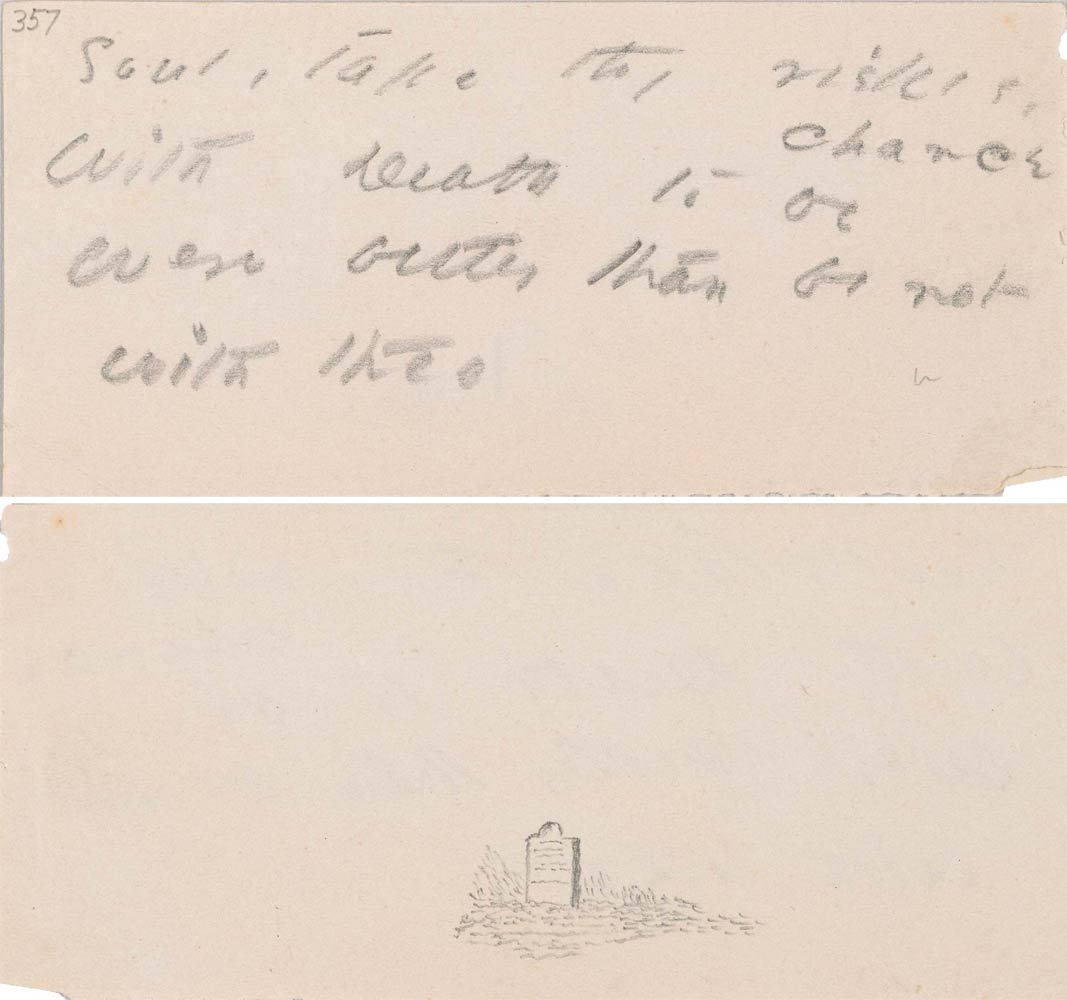 357
Soul, take thy risks,
chance
With Death to be
Were better than be not
with thee